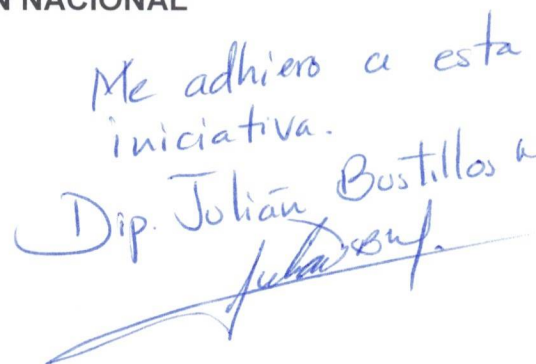 N NACIONAL
Me adhiero a esta
iniciativa.
Dip. Julián Bustillos